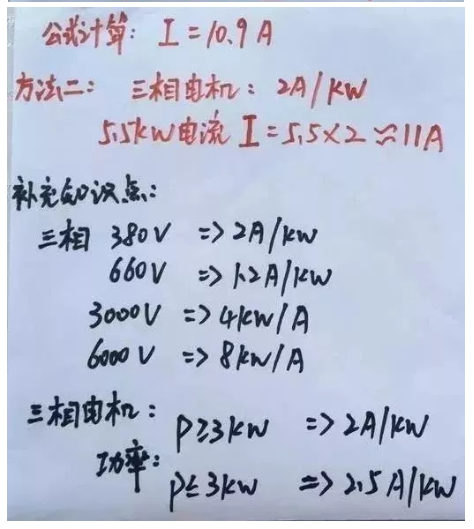 公式计算: I=10.9A
方法二: 三相电机: 2A/KW
5.5kW电流 I=5.5×2≈11A
补充知识点:
三相 380V => 2A/KW
660V => 1.2A/KW
3000V => 4KW/A
6000V => 8KW/A
三相电机:
功率:
P≥3KW => 2A/KW
P≤3KW => 2.5A/KW